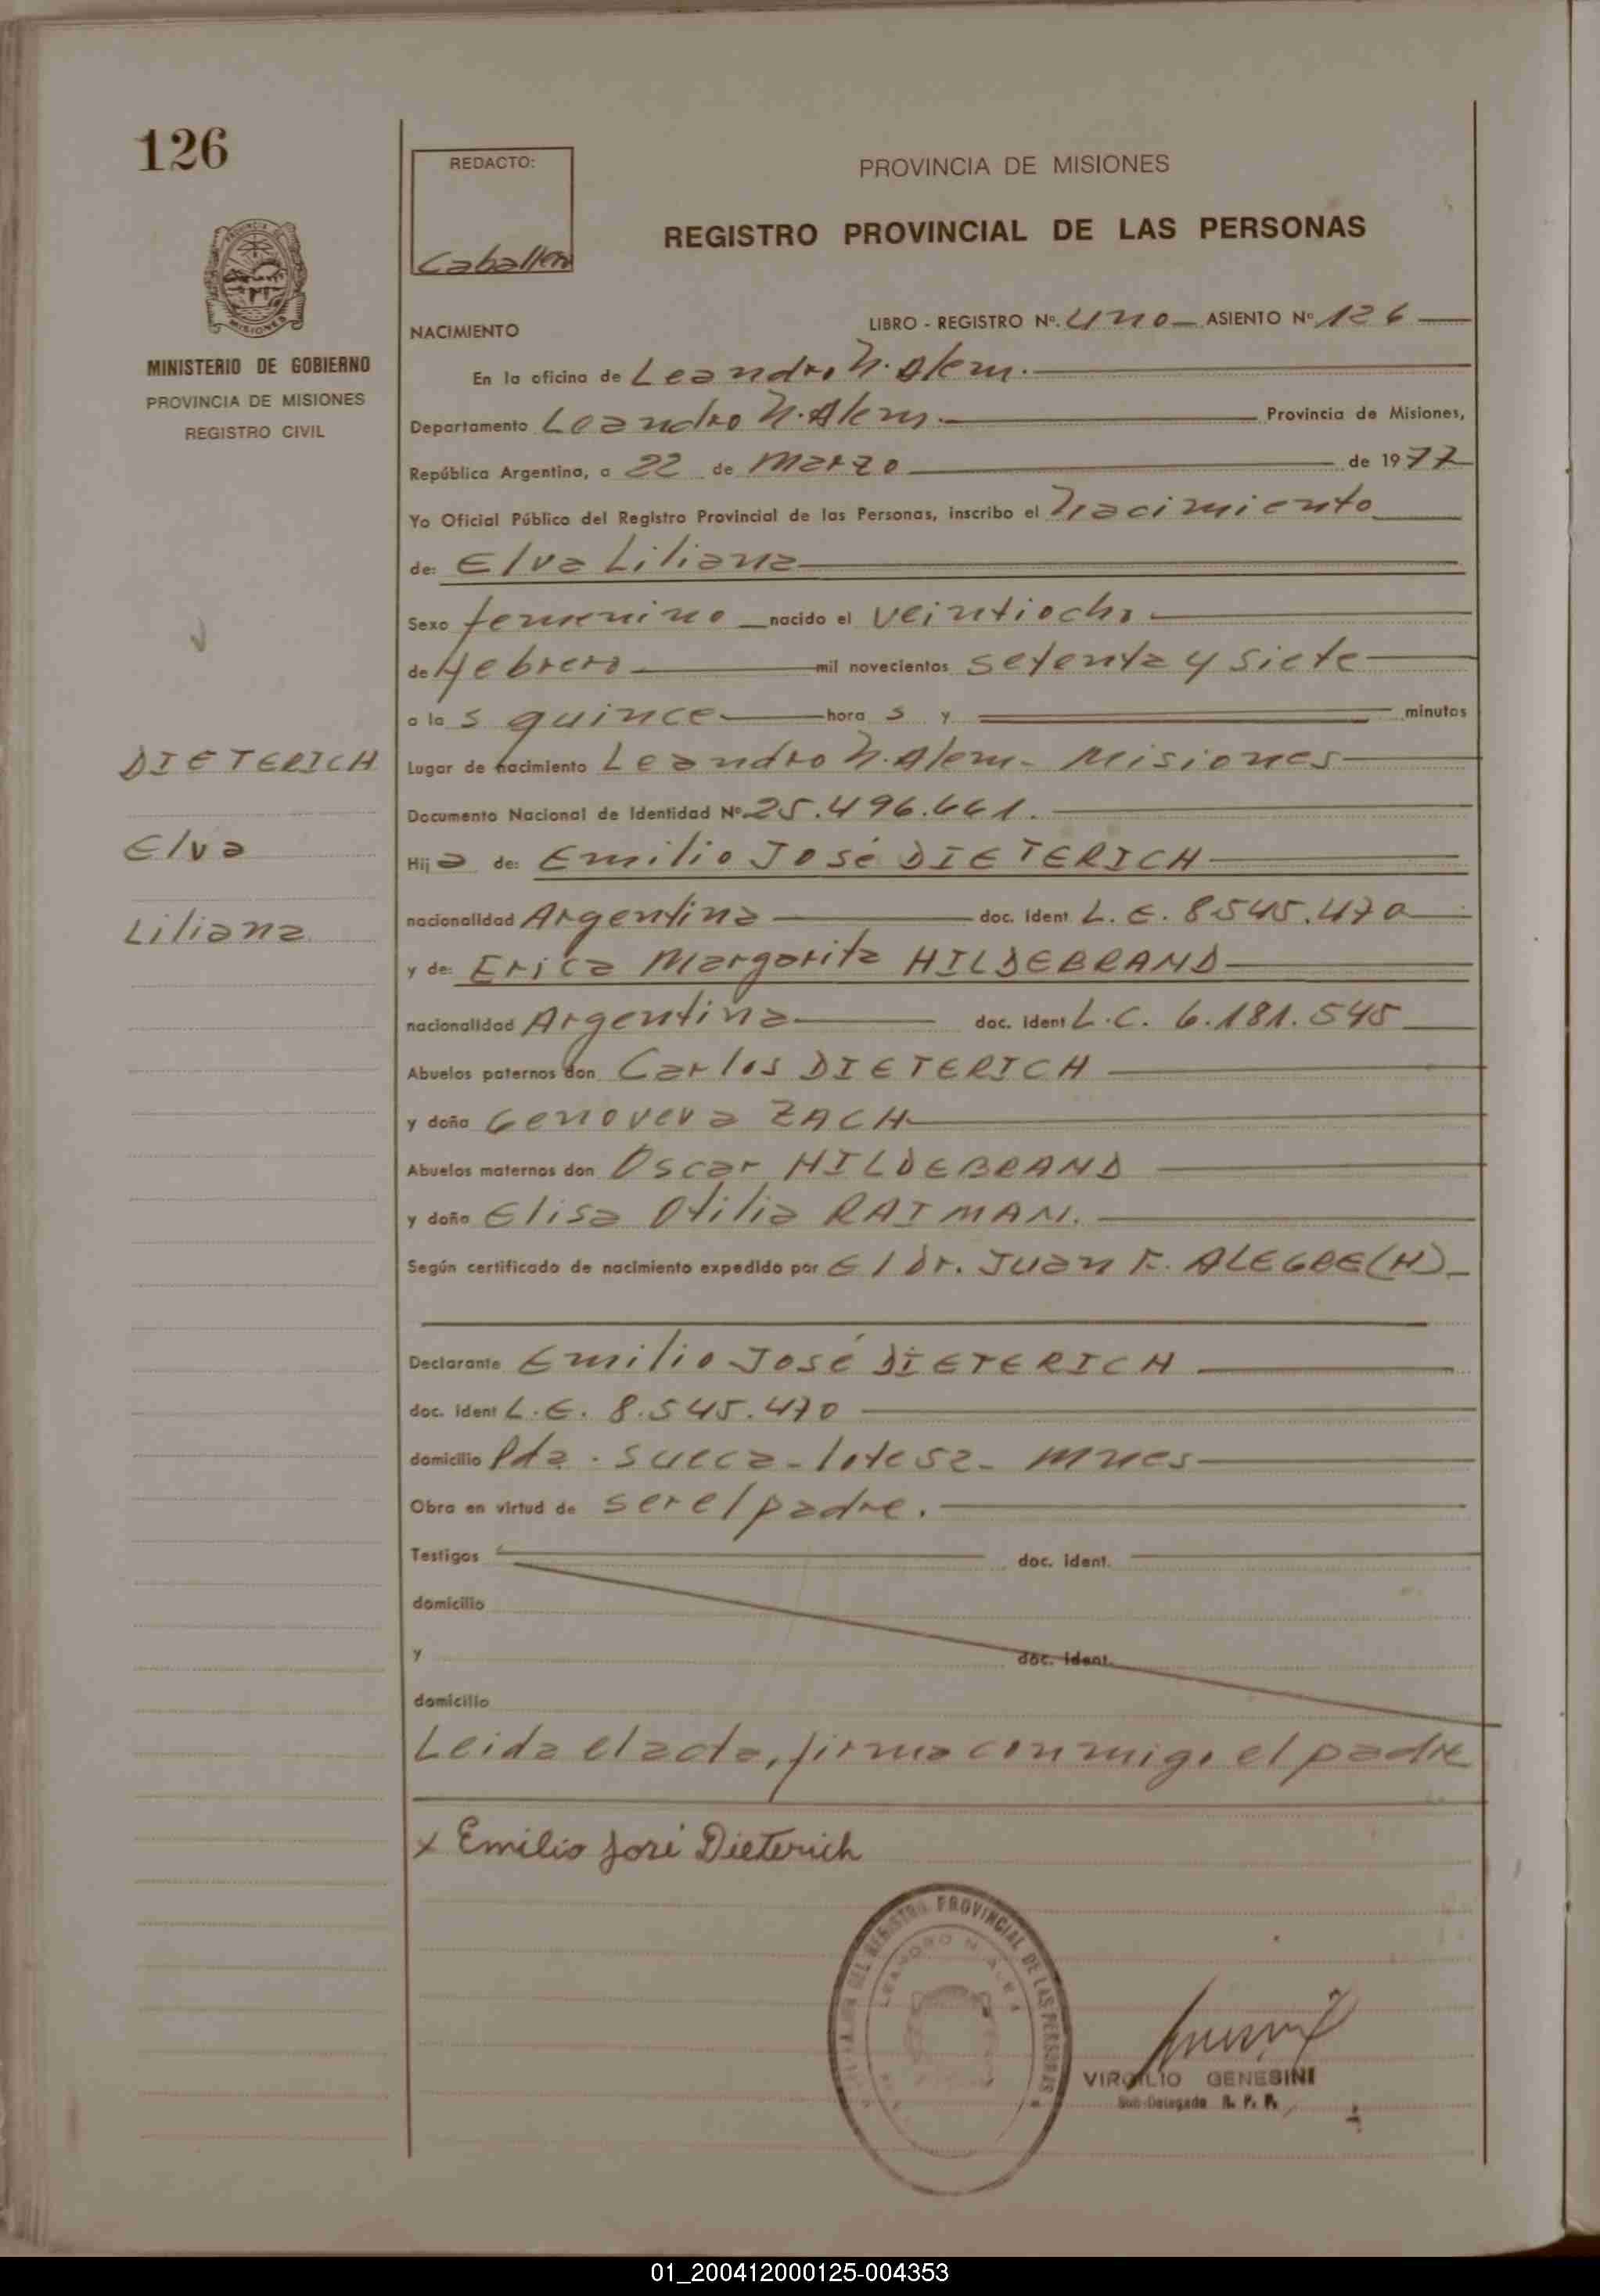 126
REDACTO:
Caballero
PROVINCIA DE MISIONES
REGISTRO PROVINCIAL DE LAS PERSONAS
MISIONES
MINISTERIO DE GOBIERNO
PROVINCIA DE MISIONES
REGISTRO CIVIL
NACIMIENTO
LIBRO - REGISTRO Nº. uno ASIENTO Nº 126
En la oficina de Leandro N. Alem.
Departamento Leandro N. Alem. Provincia de Misiones,
República Argentina, a 22 de Marzo de 1977
Yo Oficial Público del Registro Provincial de las Personas, inscribo el nacimiento
de: Elva Liliana
Sexo femenino nacido el veintiocho
de febrero mil novecientos setenta y siete
a las quince horas y minutos
DIETERICH
Lugar de nacimiento Leandro N. Alem - Misiones
Documento Nacional de Identidad Nº 25.496.661.
Elva
Hija de: Emilio José DIETERICH
Liliana
nacionalidad Argentina doc. Ident L. E. 8.545.470
y de: Erica Margarita HILDEBRAND
nacionalidad Argentina doc. Ident L.C. 6.181.545
Abuelos paternos don Carlos DIETERICH
y doña Genoveva ZACH
Abuelos maternos don Oscar HILDEBRAND
y doña Elisa Otilia RAIMAN.
Según certificado de nacimiento expedido por El Dr. Juan F. ALEGRE (H)
Declarante Emilio José DIETERICH
doc. ident L.E. 8.545.470
domicilio Pda. sueca - lote 52 - Mnes
Obra en virtud de ser el padre.
Testigos doc. ident.
domicilio
y doc. ident.
domicilio
Leida el acta, firma conmigo el padre
x Emilio José Dieterich
DEL REGISTRO PROVINCIAL DE LAS PERSONAS
LEANDRO N. ALEM
VIRGILIO GENESINI
Sub-Delegado R. P. P.
01_200412000125-004353